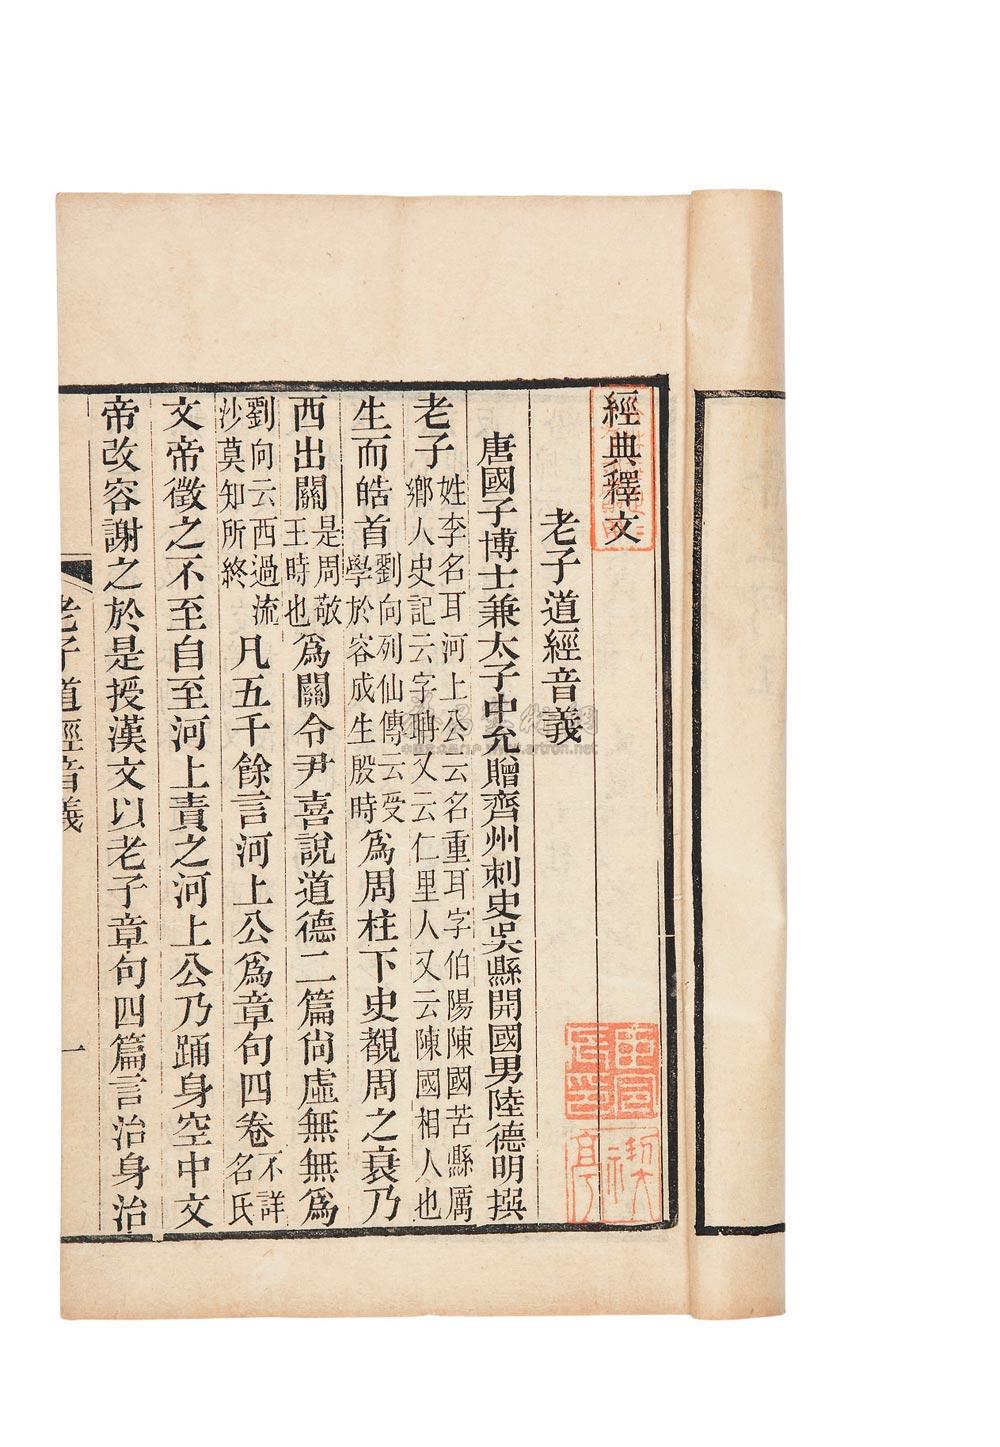 經典釋文
老子道經音義
唐國子博士兼太子中允贈齊州刺史吳縣開國男陸德明撰
老子姓李名耳河上公云名重耳字伯陽陳國苦縣厲鄉人史記云字聃又云仁里人又云陳國相人也
生而皓首劉向列仙傳云受學於容成生殷時為周柱下史覩周之衰乃
西出關是周敬王時也為關令尹喜說道德二篇尚虛無無為
劉向云西過流沙莫知所終凡五千餘言河上公為章句四卷不詳名氏
文帝徵之不至自至河上責之河上公乃踊身空中文
帝改容謝之於是授漢文以老子章句四篇言治身治
老子道經音義
一
www.artron.net